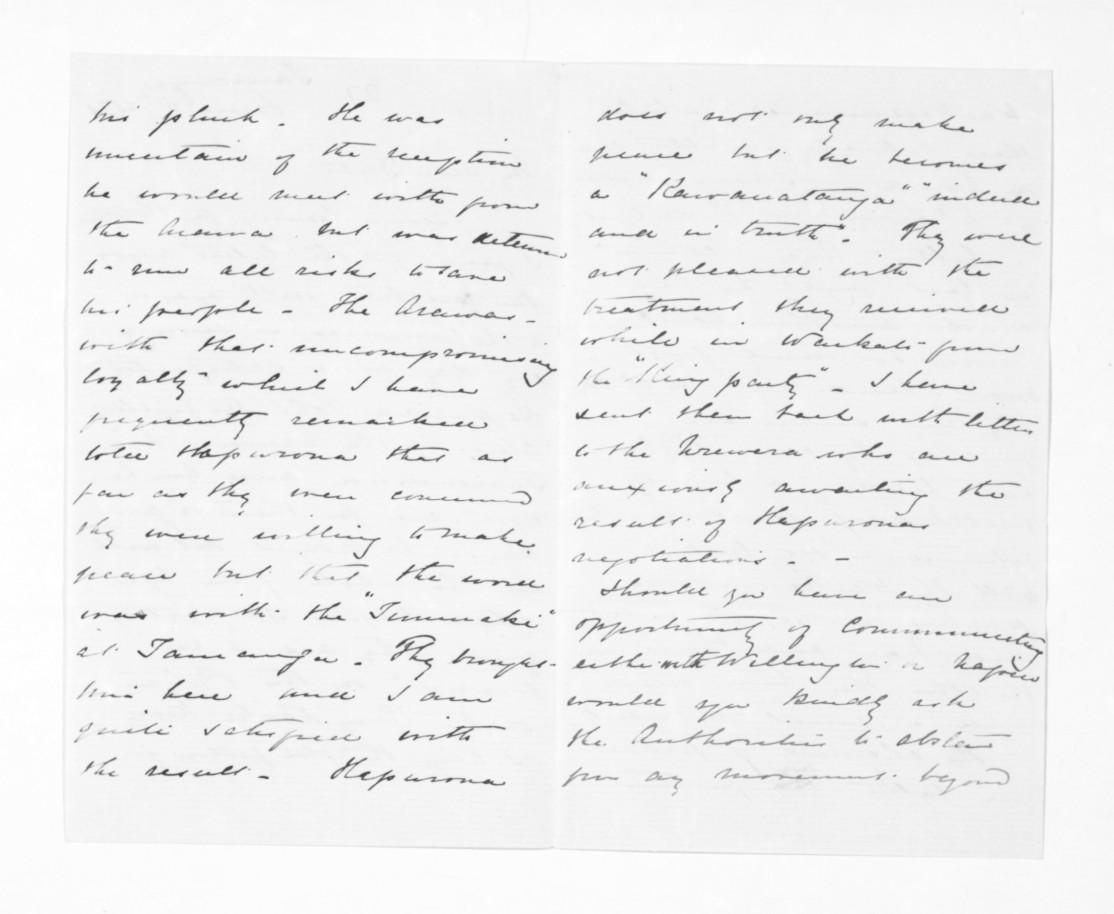 his pluck. He was
uncertain of the reception
he would meet with from
the Arawa but was determined
to run all risks to save
his people. The Arawas -
with that uncompromising
loyalty which I have
frequently remarked
told Hapurona that as
far as they were concerned
they were willing to make
peace but that the word
was with the "Tumuaki"
at Tauranga. They brought
him here and I am
quite satisfied with
the result - Hapurona
does not only make
peace but he becomes
a "Kawanatanga" "indeed
and in truth". They were
not pleased with the
treatment they received
while in Waikato from
the "King party" - I have
sent them back with letters
to the Urewera who are
anxiously awaiting the
result of Hapuronas
negotiations. -
Should you have an
opportunity of communicating
either with Wellington or Napier
would you kindly ask
the Authorities to abstain
from any movement beyond